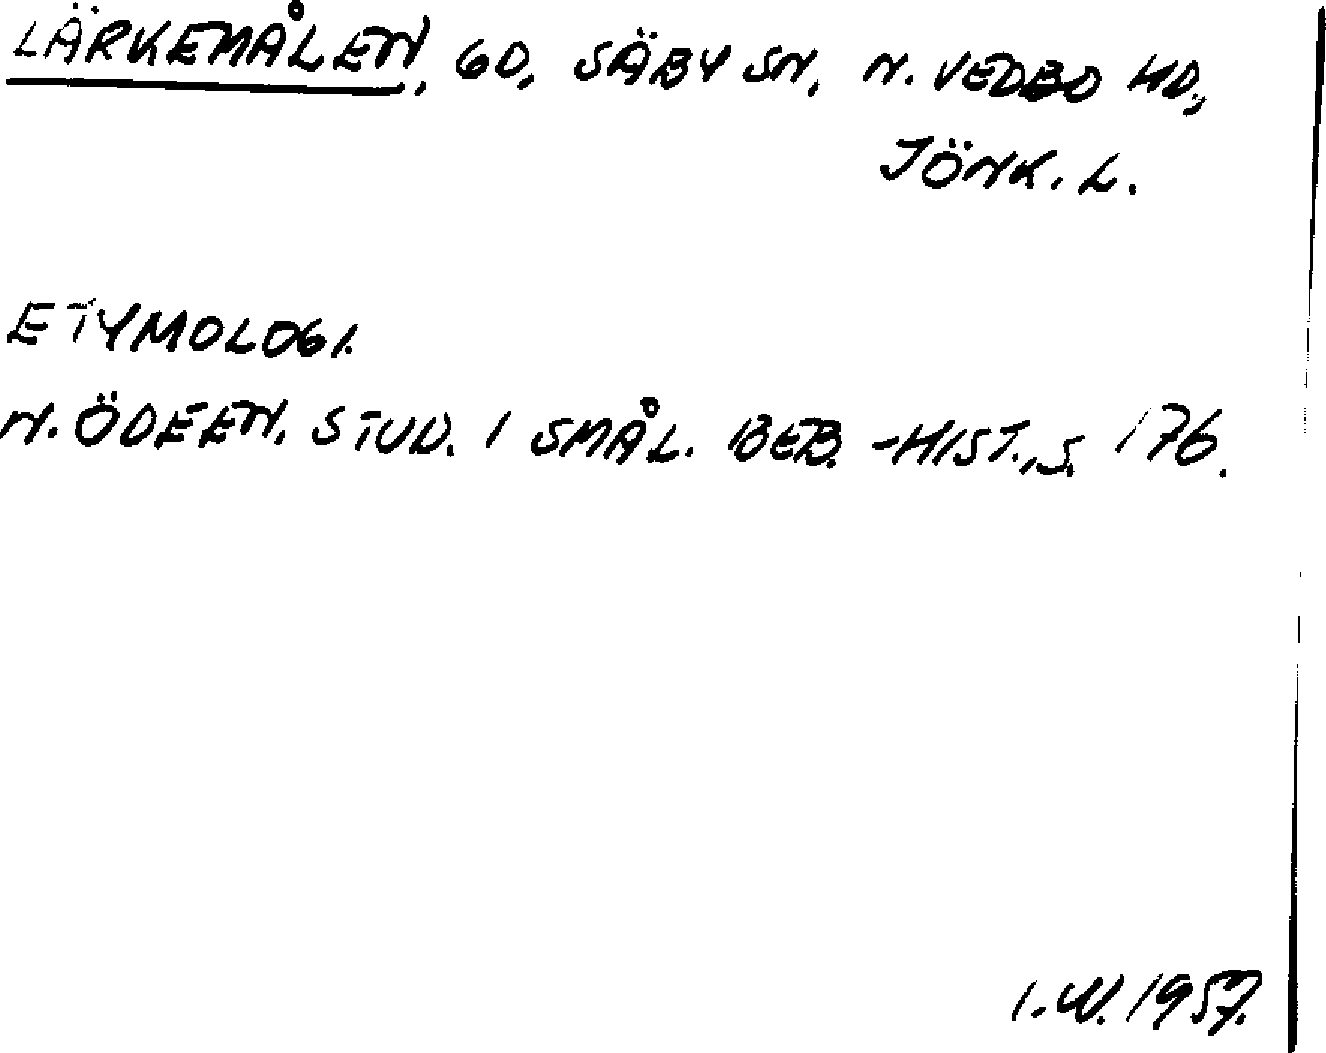 LÄRKEMÅLEN, GD, SÄBY SN, N. VEDBO HD.,
JÖNK. L.
ETYMOLOGI.
N. ÖDEEN. STUD. I SMÅL. BEB.-HIST., S. 176.
I.W. 1957.